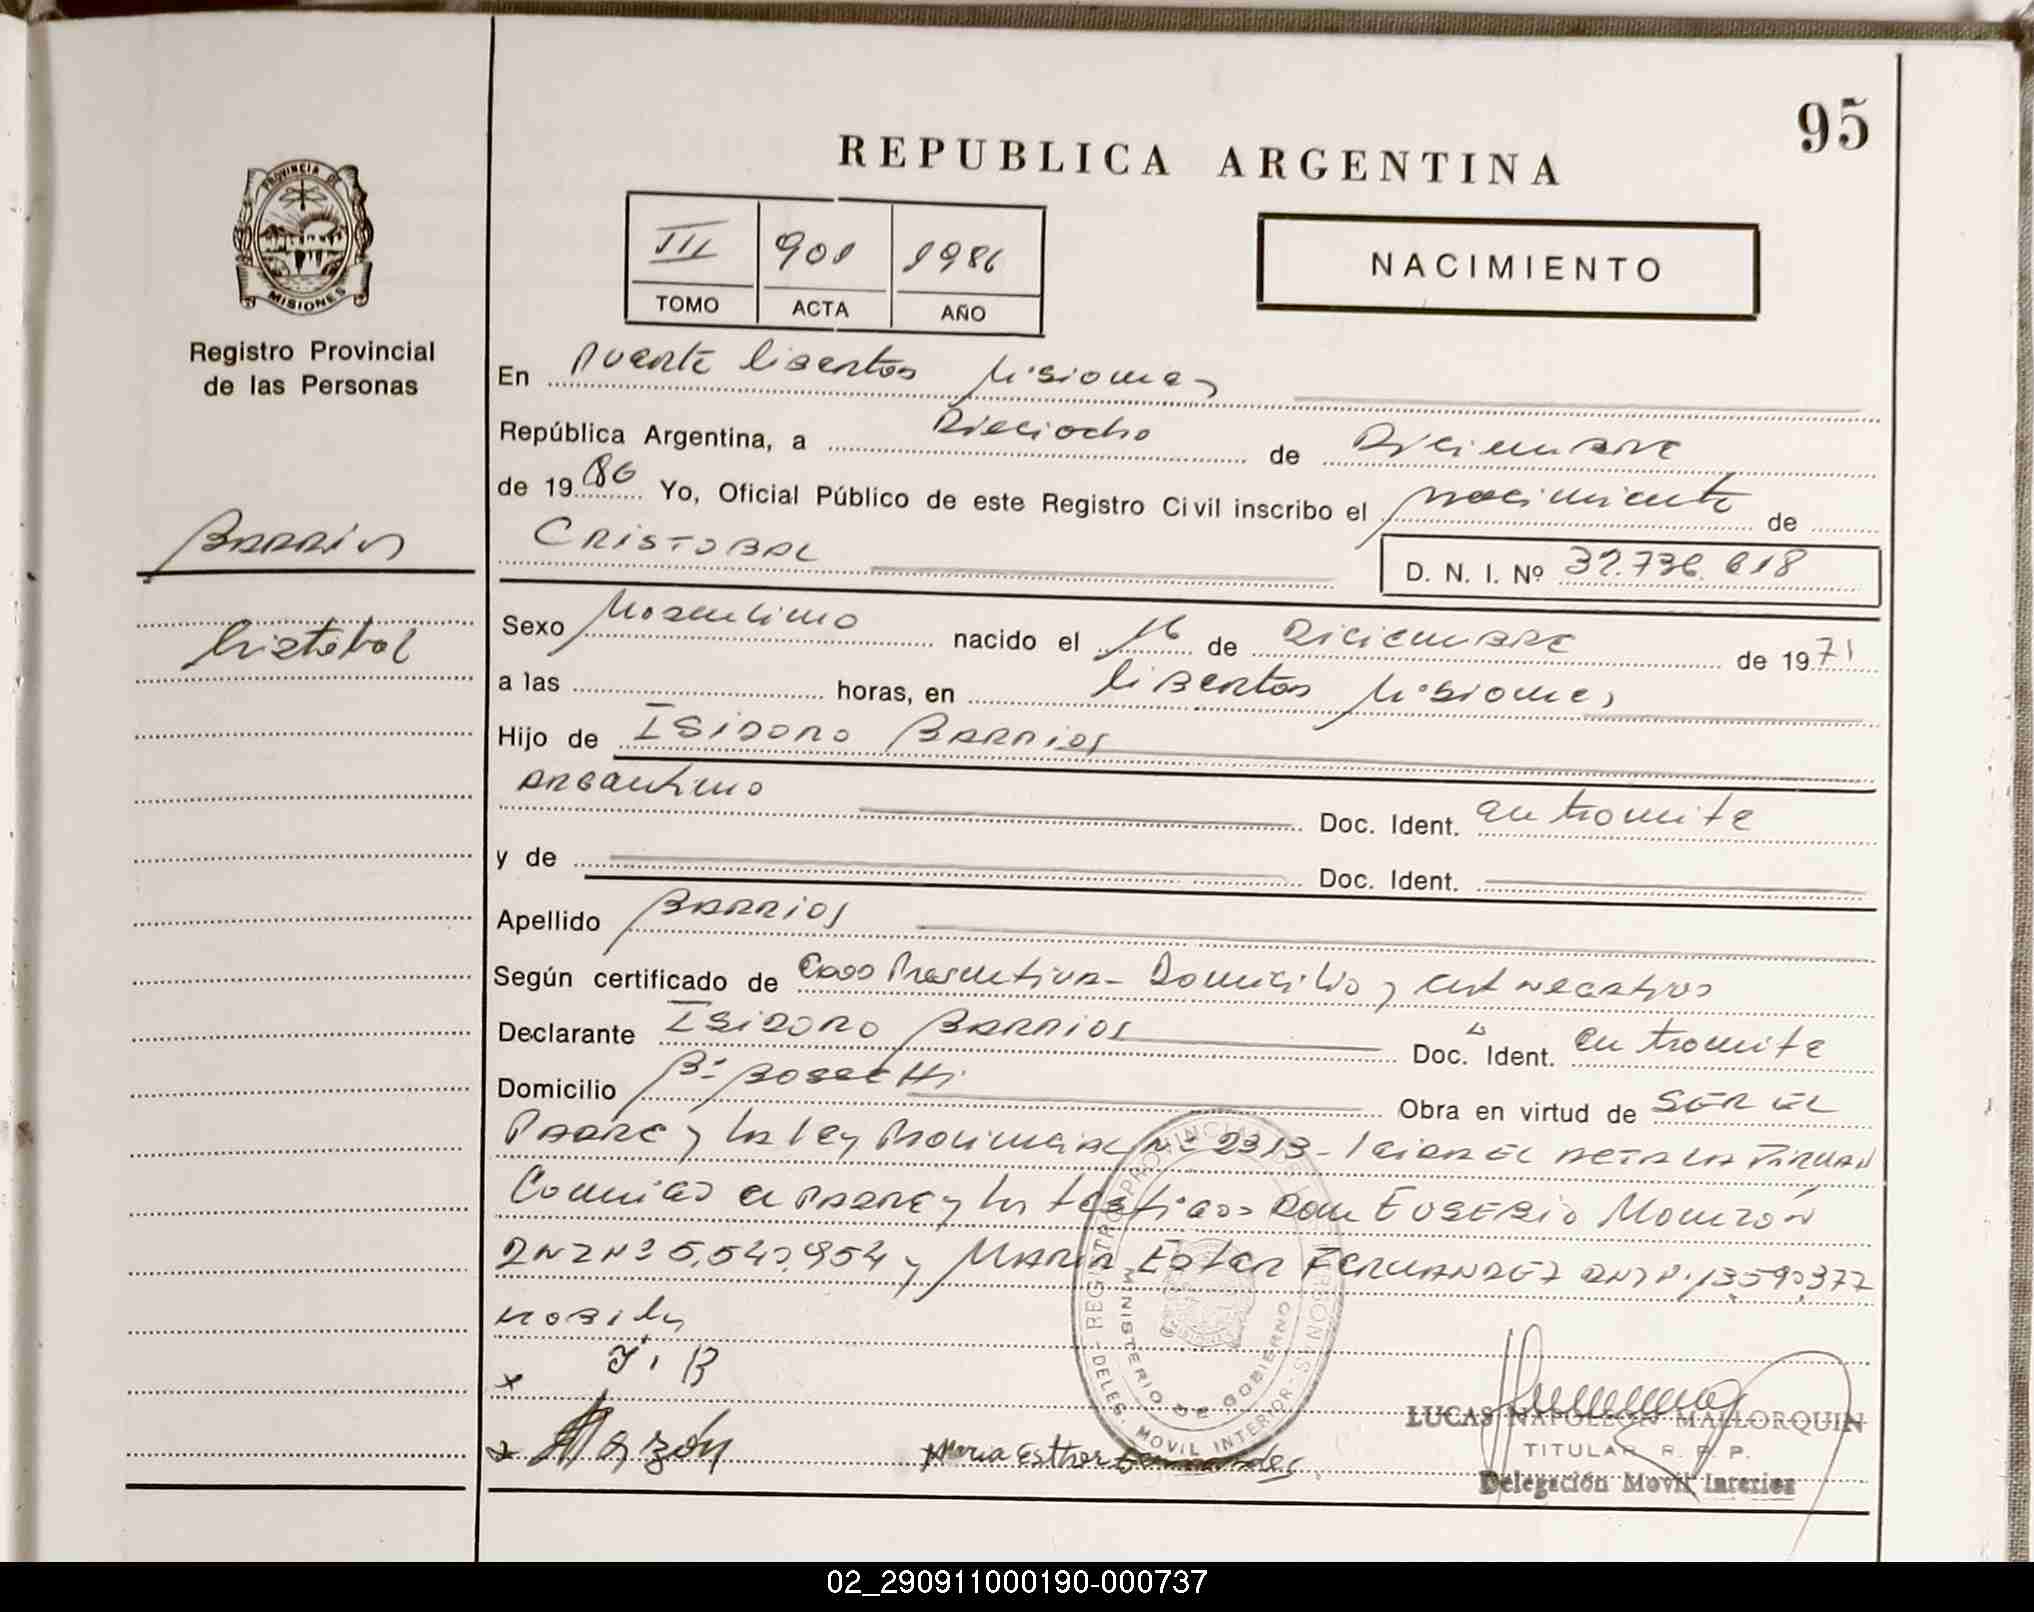 95
REPUBLICA ARGENTINA
III 901 1986
TOMO ACTA AÑO
NACIMIENTO
PROVINCIA DE
MISIONES
Registro Provincial
de las Personas
Barrios
Cristobal
En Puerto Libertad Misiones
República Argentina, a Dieciocho de Diciembre
de 1986 Yo, Oficial Público de este Registro Civil inscribo el nacimiento de
CRISTOBAL
D. N. I. Nº 32.736.618
Sexo Masculino nacido el 16 de Diciembre de 1971
a las horas, en Libertad Misiones
Hijo de Isidoro Barrios
Argentino Doc. Ident. en tramite
y de Doc. Ident.
Apellido Barrios
Según certificado de Edad Presuntiva - Domicilio y Cert Negativo
Declarante Isidoro Barrios Doc. Ident. en tramite
Domicilio Bº Bosetti Obra en virtud de SER EL
PADRE y la Ley Provincial Nº 2313 - Leida EL ACTA LA FIRMAN
Conmigo el PADRE y los testigos Don EUSEBIO Monzón
DNI Nº 5.543.954 y MARIA Ester FERNANDEZ DNI Nº 13.590.377
x I. B
x Monzón
Maria Esther Fernandez
REGISTRO PROVINCIAL DE LAS PERSONAS
MINISTERIO DE GOBIERNO
DELEG. MOVIL INTERIOR
LUCAS NAPOLEON MALLORQUIN
TITULAR R. P. P.
Delegación Movil Interior
02_290911000190-000737